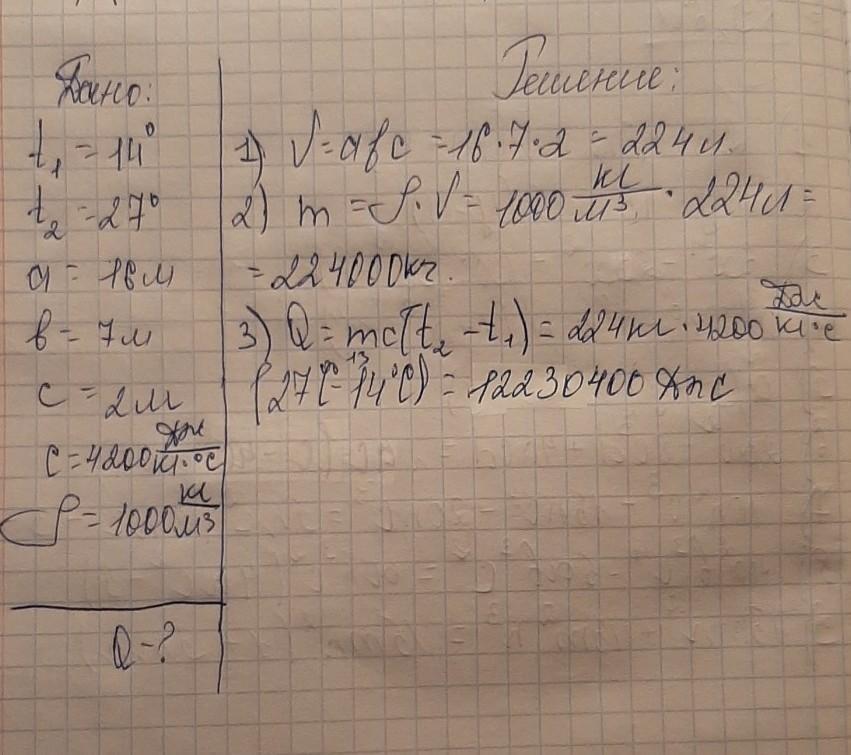 Дано:
t₁ = 14°
t₂ = 27°
a = 16м
в = 7м
c = 2м
c = 4200 Дж/кг·°C
ρ = 1000 кг/м³
Q - ?
Решение:
1) V = aвc = 16·7·2 = 224м.
2) m = ρ·V = 1000 кг/м³ · 224м =
= 224000кг.
3) Q = mc(t₂ - t₁) = 224кг · 4200 Дж/кг·°C
13
(27°C - 14°C) = 12230400 Дж